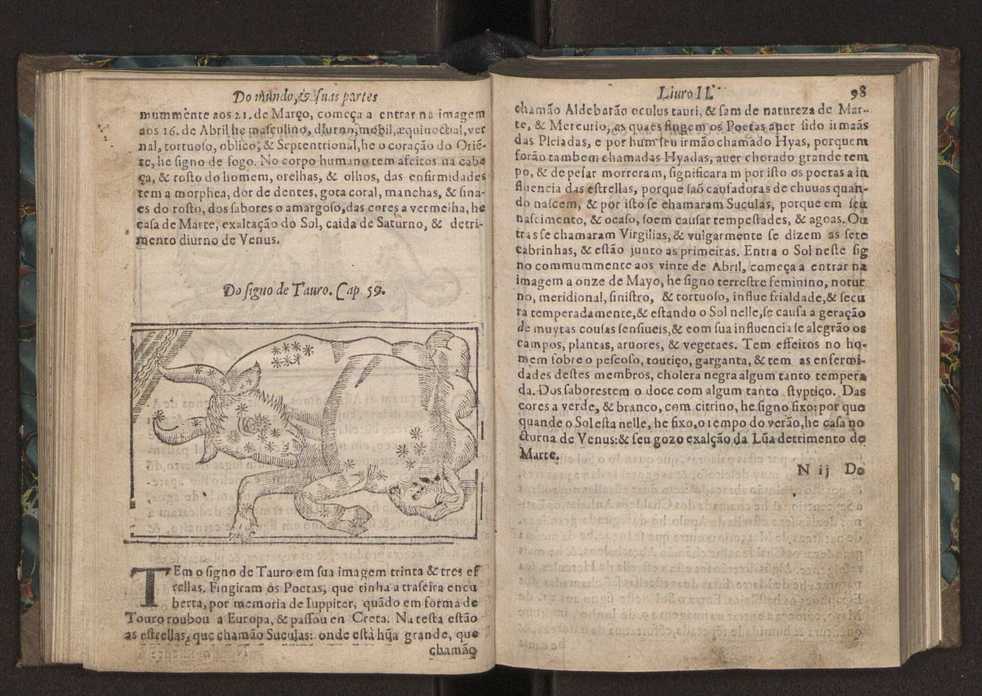 Do mundo, & suas partes
mummente aos 21. de Março, começa a entrar na imagem
aos 16. de Abril he masculino, diurno, mobil, æquinoctial, ver
nal, tortuoso, oblico, & Septentrional, he o coração do Oriẽ-
te, he signo de fogo. No corpo humano tem afeitos na cabe
ça, & rosto do homem, orelhas, & olhos, das enfirmidades
tem a morphea, dor de dentes, gota coral, manchas, & sina-
es do rosto, dos sabores o amargoso, das cores a vermelha, he
casa de Marte, exaltação do Sol, caida de Saturno, & detri-
mento diurno de Venus.
Do signo de Tauro. Cap. 59.
TEm o signo de Tauro em sua imagem trinta & tres es
trellas. Fingiram os Poetas, que tinha a traseira encu
berta, por memoria de Iuppiter, quãdo em forma de
Touro roubou a Europa, & passou en Creta. Na testa estão
as estrellas, que chamão Suculas: onde està hũa grande, que
chamão
Liuro II.
98
chamão Aldebarão oculus tauri, & sam de natureza de Mar-
te, & Mercurio, as quaes fingem os Poetas auer sido irmaãs
das Pleiadas, e por hum seu irmão chamado Hyas, porquem
forão tambem chamadas Hyadas, auer chorado grande tem
po, & de pesar morreram, significaram por isto os poetas a in
fluencia das estrellas, porque saõ causadoras de chuuas quan-
do nascem, & por isto se chamaram Suculas, porque em seu
nascimento, & ocaso, soem causar tempestades, & agoas. Ou
tras se chamaram Virgilias, & vulgarmente se dizem as sete
cabrinhas, & estão junto as primeiras. Entra o Sol neste sig
no commummente aos vinte de Abril, começa a entrar na
imagem a onze de Mayo, he signo terrestre feminino, notur
no, meridional, sinistro, & tortuoso, influe frialdade, & secu
ra temperadamente, & estando o Sol nelle, se causa a geração
de muytas cousas sensiueis, & com sua influencia se alegrão os
campos, plantas, aruores, & vegetaes. Tem effeitos no ho-
mem sobre o pescoso, toutiço, garganta, & tem as enfermi-
dades destes membros, cholera negra algum tanto tempera
da. Dos sabores tem o doce com algum tanto styptico. Das
cores a verde, & branco, com citrino, he signo fixo: por que
quando o Sol esta nelle, he fixo, o tempo do verão, he casa no
cturna de Venus: & seu gozo exalção da Lũa detrimento de
Marte.
N ij Do